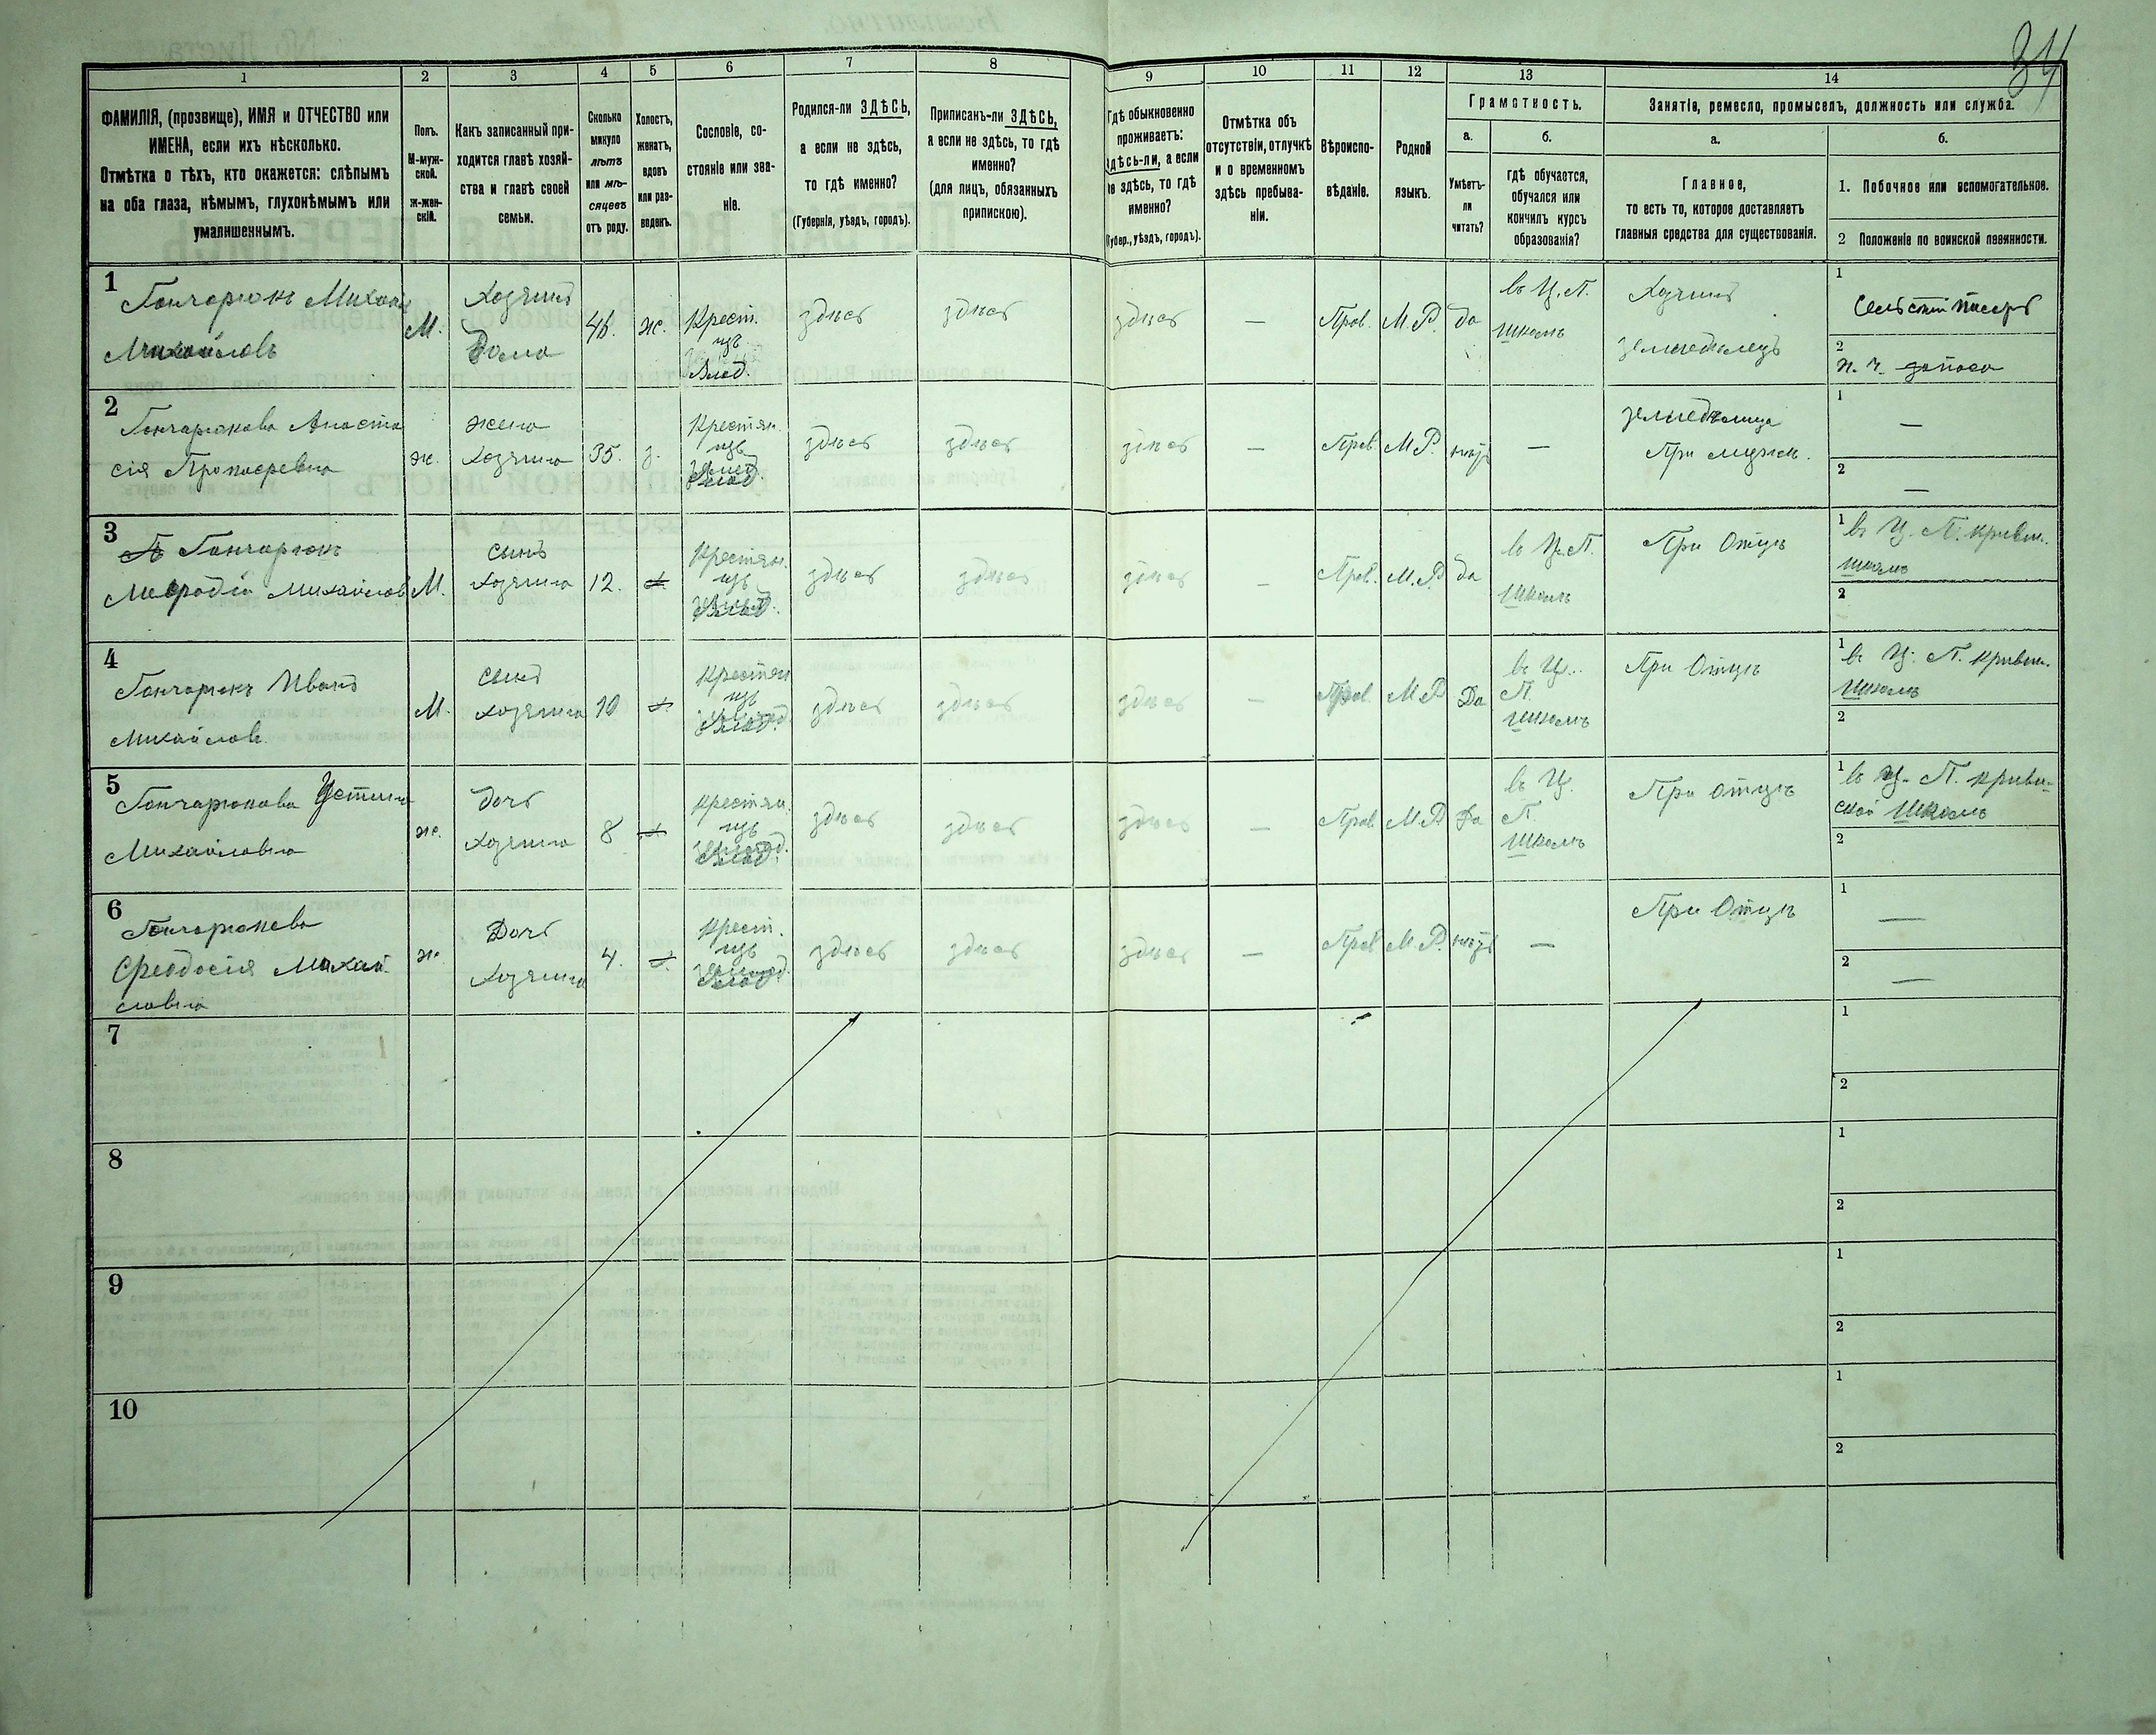 34
1 2 3 4 5 6 7 8 9 10 11 12 13 14
ФАМИЛІЯ, (прозвище), ИМЯ и ОТЧЕСТВО или
ИМЕНА, если ихъ нѣсколько.
Отмѣтка о тѣхъ, кто окажется: слѣпымъ
на оба глаза, нѣмымъ, глухонѣмымъ или
умалишеннымъ.
Полъ.
М-муж-
ской.
ж-жен-
скій.
Какъ записанный при-
ходится главѣ хозяй-
ства и главѣ своей
семьи.
Сколько
минуло
лѣтъ
или мѣ-
сяцевъ
отъ роду.
Холостъ,
женатъ,
вдовъ
или раз-
веденъ.
Сословіе, со-
стояніе или зва-
ніе.
Родился-ли ЗДѢСЬ,
а если не здѣсь,
то гдѣ именно?
(Губернія, уѣздъ, городъ).
Приписанъ-ли ЗДѢСЬ,
а если не здѣсь, то гдѣ
именно?
(для лицъ, обязанныхъ
припискою).
Гдѣ обыкновенно
проживаетъ:
здѣсь-ли, а если
не здѣсь, то гдѣ
именно?
(Губер., уѣздъ, городъ).
Отмѣтка объ
отсутствіи, отлучкѣ
и о временномъ
здѣсь пребыва-
ніи.
Вѣроиспо-
вѣданіе.
Родной
языкъ.
Грамотность.
а. б.
Умѣетъ-
ли
читать?
гдѣ обучается,
обучался или
кончилъ курсъ
образованія?
Занятіе, ремесло, промыселъ, должность или служба.
а. б.
Главное,
то есть то, которое доставляетъ
главныя средства для существованія.
1. Побочное или вспомогательное.
2 Положеніе по воинской повинности.
1
Гончарюкъ Михаилъ
Михайловъ
М.
Хозяинъ
Дома
46. ж.
Крест.
изъ
Влад.
здѣсь здѣсь здѣсь — Прав. М.Р. да
въ Ц.П.
школѣ
Хозяинъ
земледѣлецъ
1
Сельский писарь
2
2
Гончарюкова Анаста
сія Прокофьевна
ж.
жена
Хозяина
35. з.
Крестян.
изъ
Влад.
здѣсь здѣсь здѣсь — Прав. М.Р. нѣтъ —
земледѣлица
При мужѣ.
1 —
2 —
3
Гончарюкъ
Мефодій Михайловъ
М.
сынъ
хозяина
12. х
Крестян.
изъ
Влад.
здѣсь здѣсь здѣсь — Прав. М.Р. да
въ Ц.П.
школѣ
При Отцѣ
1 въ Ц. П. кривин.
школѣ
2
4
Гончарюкъ Иванъ
Михайловъ
М.
сынъ
хозяина
10 х
Крестян
изъ
Влад.
здѣсь здѣсь здѣсь — Прав. М.Р. Да
въ Ц.
П.
школѣ
При Отцѣ
1 въ Ц. П. кривин.
школѣ
2
5
Гончарюкова Устина
Михайловна
ж.
дочь
хозяина
8 х
крестян.
изъ
Влад.
здѣсь здѣсь здѣсь — Прав М.Р. Да
въ Ц.
П.
школѣ
При отцѣ
1 въ Ц. П. криви-
ской школѣ
2
6
Гончарюкова
Феодосія Михай
ловна
ж.
Дочь
Хозяина
4. х.
Крест.
изъ
Влад.
здѣсь здѣсь здѣсь — Прав. М.Р. нѣтъ —
При Отцѣ
1 —
2 —
7
1
2
8
1
2
9
1
2
10
1
2